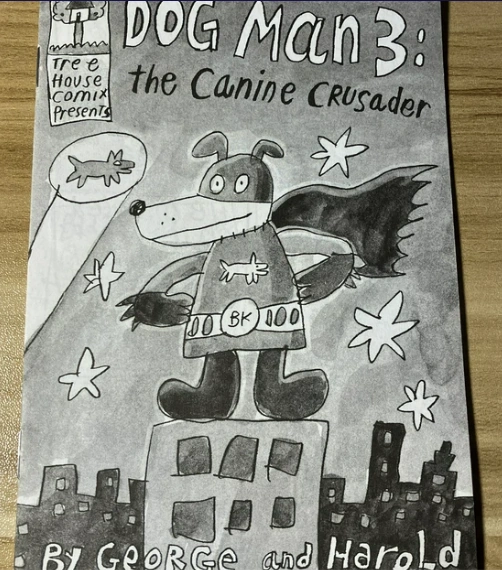 DOG Man 3:
the Canine CRUSader
Tree
House
Comix
Presents
BK
By GEORGE and Harold